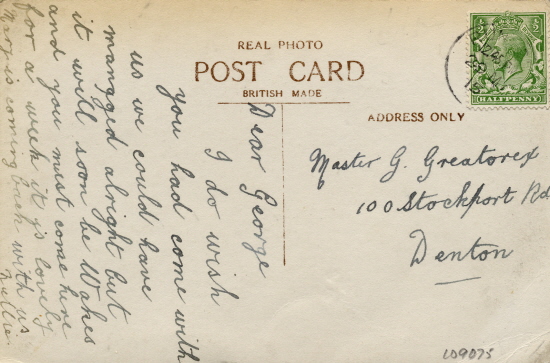 REAL PHOTO
POST CARD
BRITISH MADE
Dear George
I do wish
you had come with
us we could have
mangged alright but
it will soon be Wakes
and you must come here
for a week it is lovely
Mary is coming back with us
Nellie
ADDRESS ONLY
Master G. Greatorex
100 Stockport Rd
Denton
½ ½
HALFPENNY
LO9075